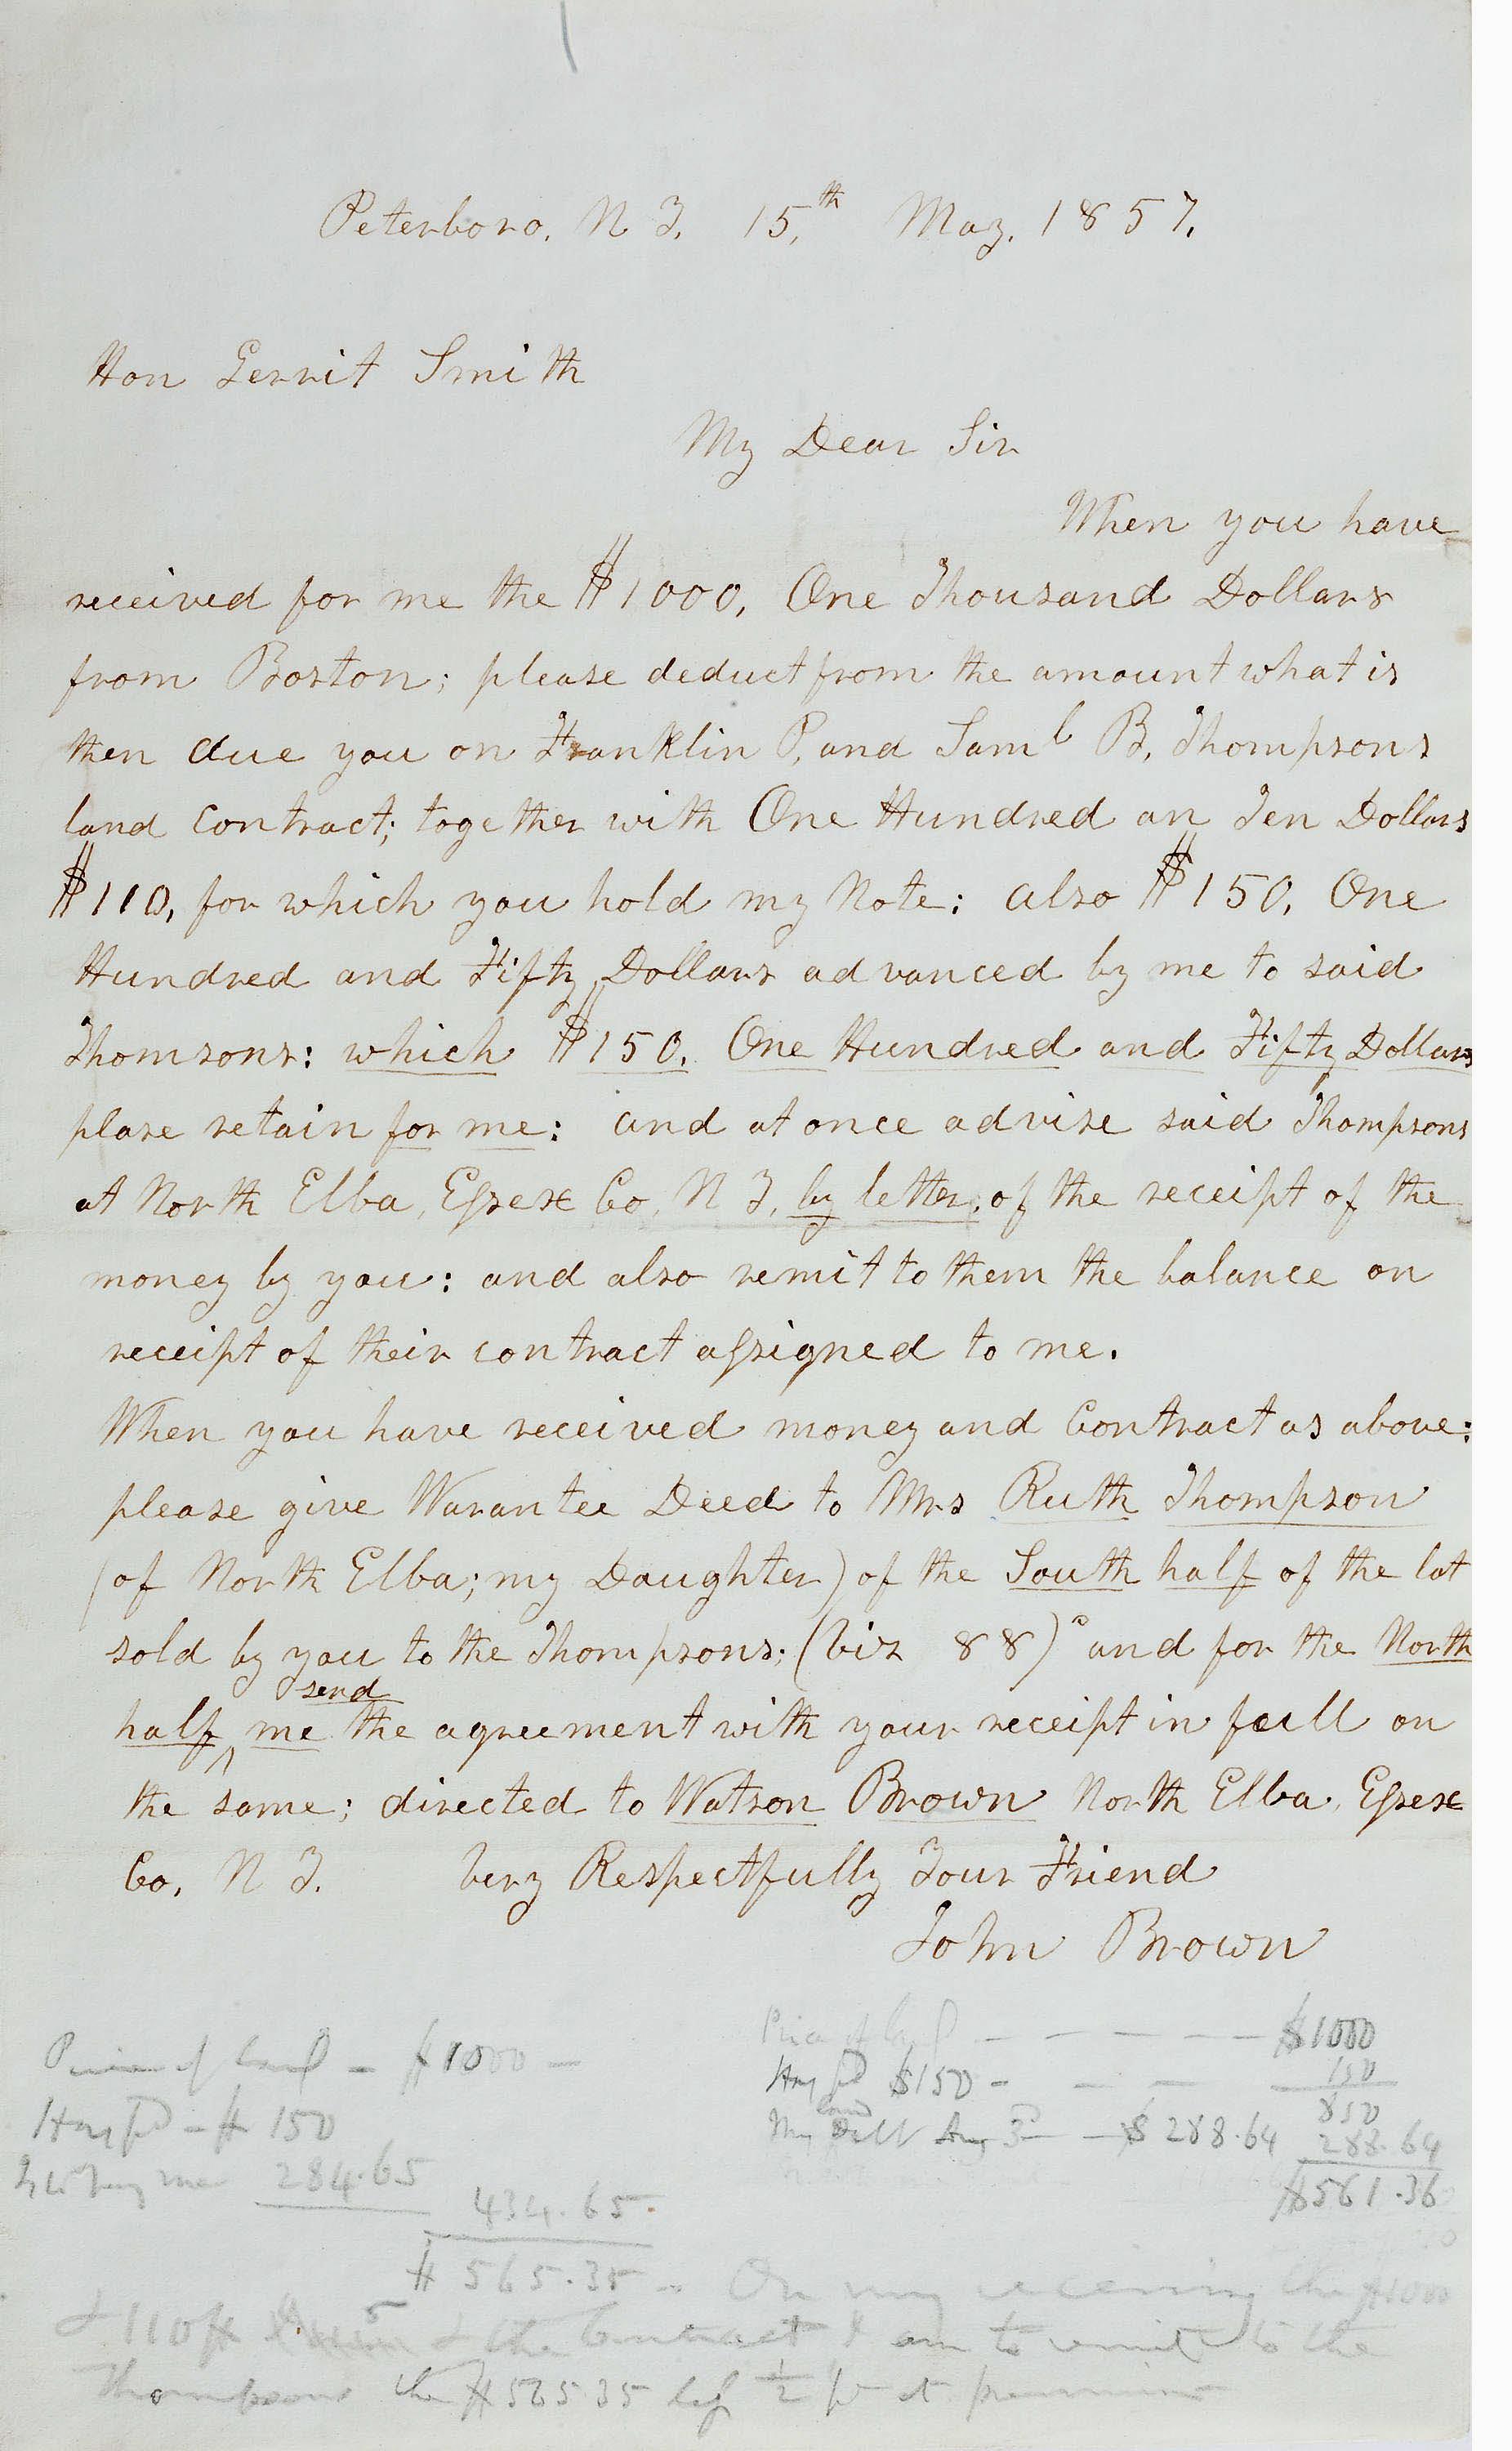 Peterboro, N Y, 15,th May, 1857,
Hon Gerrit Smith
My Dear Sir
When you have
received for me the $1000, One Thousand Dollars
from Boston; please deduct from the amount what is
then due you on Franklin P, and Saml B, Thompsons
land contract; together with One Hundred an Ten Dollars
$110, for which you hold my Note: also $150, One
Hundred and Fifty Dollars advanced by me to said
Thomsons: which $150, One Hundred and Fifty Dollars
plase retain for me: and at once advise said Thompsons
at North Elba, Essex Co, N Y, by letter, of the receipt of the
money by you: and also remit to them the balance on
receipt of their contract assigned to me.
When you have received money and Contract as above:
please give Warantee Deed to Mrs Ruth Thompson
(of North Elba; my Daughter) of the South half of the lot
sold by you to the Thompsons; (viz 88) and for the North
send
half me the agreement with your receipt in full on
the same; directed to Watson Brown North Elba, Essex
Co, N Y. Very Respectfully Your Friend
John Brown
Price of Land - $1000 -
$ 150
284.65
434.65
$565.35 - On my receiving the $1000
& 110 $ & the Contract I am to remit to the
Thompsons the $565.35 less 1/2 pr ct premium
Price of - - - - - $1000
$150 - - - 150
850
My Debt Aug 3d - $288.64 288.64
$561.36